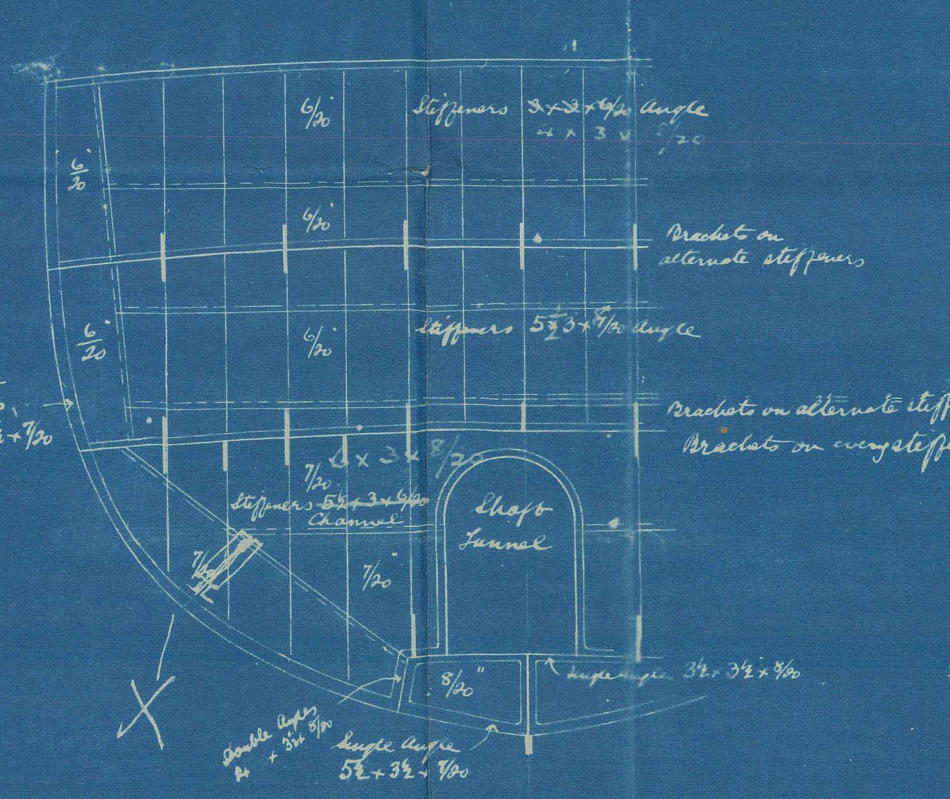 6/20"
Stiffeners 3 x 3 x 6/20 Angle
4 x 3 x 8/20
6/20"
6/20"
Brackets on
alternate stiffeners
6/20"
6/20"
Stiffeners 5½ 3 x 9/20 Angle
Brackets on alternate stiff
x 7/20
Brackets on every stiffe
6 x 3 x 8/20
7/20
Stiffeners 5½ x 3 x 6/20
Channel
Shaft
Tunnel
7/20
7/20"
8/20"
Single Angle 3½ x 3½ x 8/20
X
Double Angles
Single Angle
5½ x 3½ x 8/20